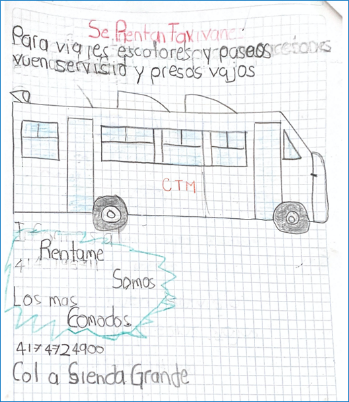 Se Rentan Taxivans
Para viajes escolores y paseos
vuen servisio y presos vajos
CTM
Rentame
Somos
Los mas
Comodos
417 4724900
Col a Sienda Grande